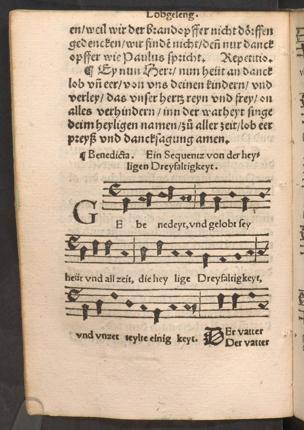 Lobgeseng.
en/weil wir der brandopffer nicht dörffen
gedencken/wir sindē nicht/deñ nur danck
opffer wie Paulus spricht. Repetitio.
¶ Ey nun Herr/nun heüt an danck
lob vñ eer/von vns deinen kindern/vnd
verley/das vnser hertz reyn vnd frey/on
alles verhindern/inn der warheyt singe
deim heyligen namen/zů aller zeit/lob eer
preyß vnd dancksagung amen.
¶ Benedicta. Ein Sequentz von der hey-
ligen Dreyfaltigkeyt.
GE be nedeyt,vnd gelobt sey
heüt vnd all zeit, die hey lige Dreyfaltigkeyt,
vnd vnzer teylte einig keyt. DEr vatter
Der vatter